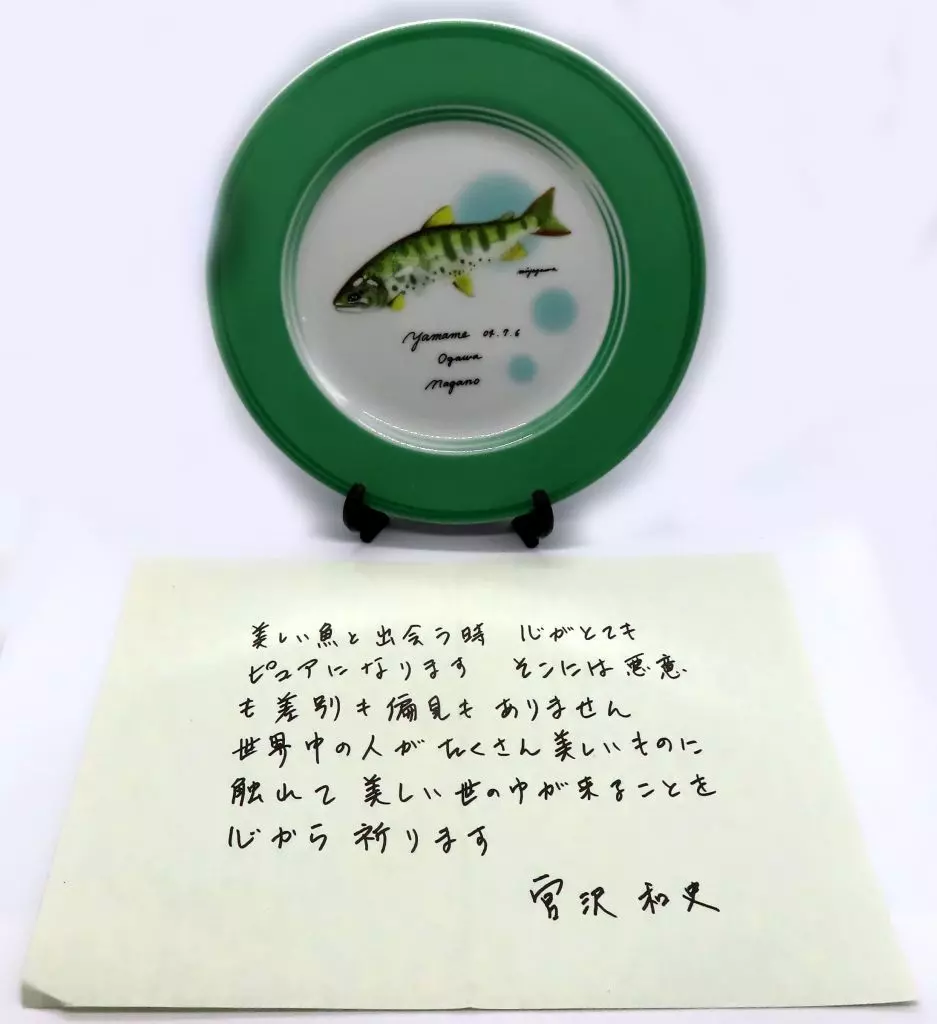 miyazawa
Yamame 04.7.6
Ogawa
Nagano
美しい魚と出会う時 心がとても
ピュアになります そこには悪意
も差別も偏見もありません
世界中の人がたくさん美しいものに
触れて 美しい世の中が来ることを
心から 祈ります
宮沢 和史